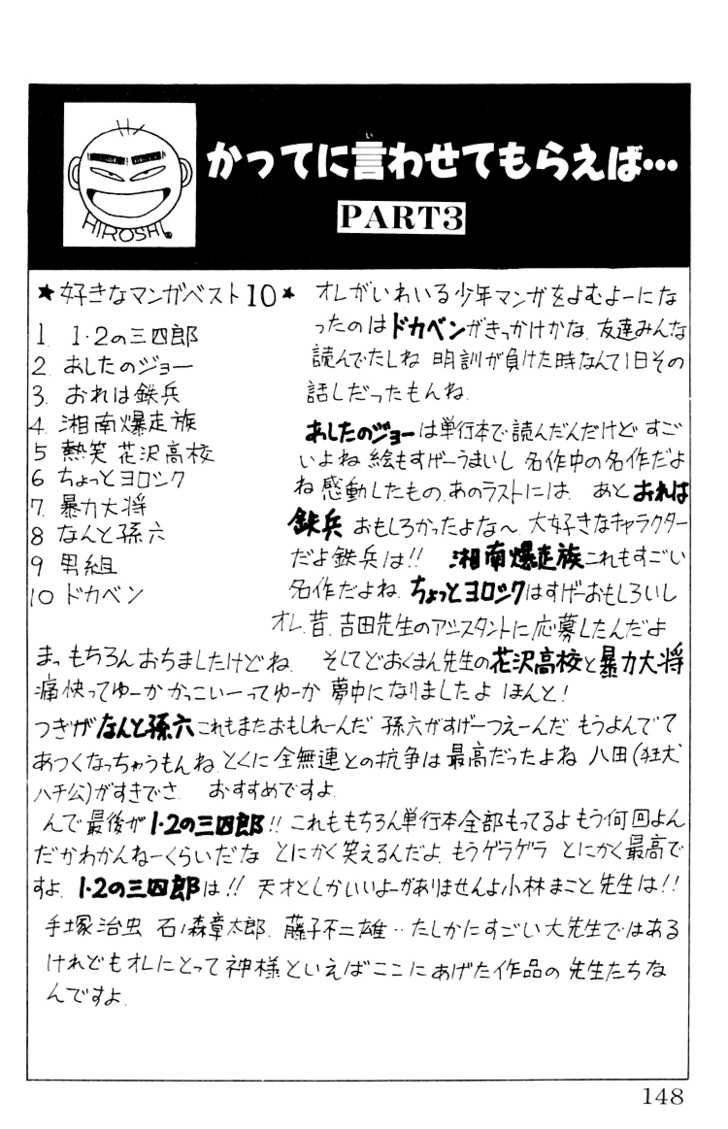 かってに言わせてもらえば…
PART3
HIROSHI.
★好きなマンガベスト10★
1. 1・2の三四郎
2. あしたのジョー
3. おれは鉄兵
4. 湘南爆走族
5 熱笑 花沢高校
6 ちょっとヨロシク
7. 暴力大将
8 なんと孫六
9 男組
10 ドカベン
オレがいわいる少年マンガをよむよーにな
ったのはドカベンがきっかけかな. 友達みんな
読んでたしね 明訓が負けた時なんて1日その
話しだったもんね.
あしたのジョーは単行本で読んだんだけど すご
いよね 絵もすげーうまいし 名作中の名作だよ
ね 感動したもの. あのラストには. あと おれは
鉄兵 おもしろかったよな〜 大好きなキャラクター
だよ鉄兵は!! 湘南爆走族これもすごい
名作だよね. ちょっとヨロシクはすげーおもしろいし
オレ.昔. 吉田先生のアシスタントに応募したんだよ
まっ もちろん おちましたけどね. そしてどおくまん先生の花沢高校と暴力大将
痛快ってゆーか かっこいーってゆーか 夢中になりましたよ ほんと!
つぎが なんと孫六 これもまたおもしれーんだ 孫六がすげーつえーんだ. もうよんでて
あつくなっちゃうもんね. とくに 全無連との抗争は最高だったよね 八田(狂犬
ハチ公)がすきでさ. おすすめですよ.
んで最後が 1・2の三四郎!! これももちろん単行本全部もってるよ もう何回よん
だかわかんねーくらいだな とにかく笑えるんだよ. もうゲラゲラ とにかく最高で
すよ. 1・2の三四郎は!! 天才としかいいよーがありませんよ小林まこと先生は!!
手塚治虫 石ノ森章太郎. 藤子不二雄‥たしかにすごい大先生ではある
けれどもオレにとって神様といえばここにあげた作品の先生たちな
んですよ.
148